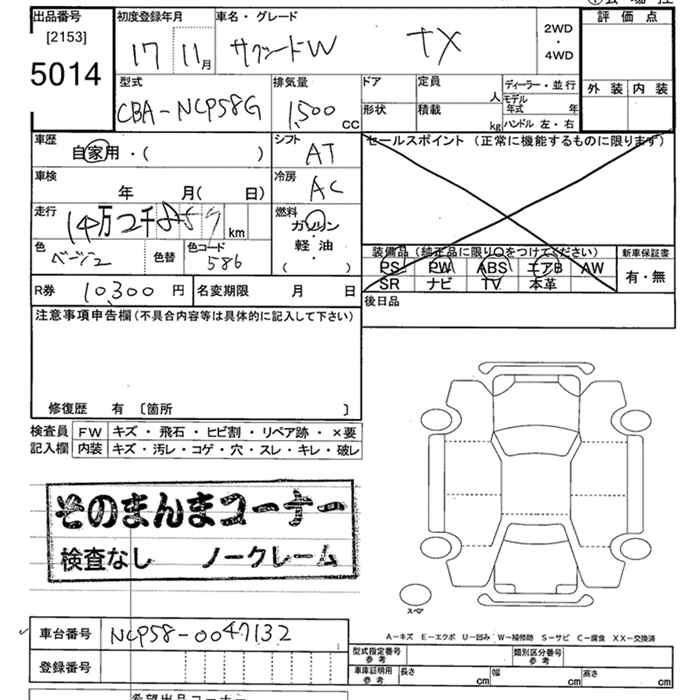 出品番号 初度登録年月 車名・グレード 評価点
[2153] 17 11月 サクシードW TX 2WD・4WD
5014
型式 排気量 ドア 定員 ディーラー・並行 外装 内装
CBA-NCP58G 1,500 CC 形状 積載 人 kg モデル年式 年 ハンドル 左・右
車歴 シフト セールスポイント (正常に機能するものに限ります)
自家用・( ) AT
車検 冷房
年 月( 日) AC
走行 燃料
14万2千859 km ガソリン・軽油・( )
色 色替 色コード 装備品(純正品に限り○をつけてください) 新車保証書
ベージュ 586 PS PW ABS エアB AW 有・無
SR ナビ TV 本革
R券 10,300 円 名変期限 月 日 後日品
注意事項申告欄(不具合内容等は具体的に記入して下さい)
修復歴 有 〔箇所 〕
検査員 FW キズ・飛石・ヒビ割・リペア跡・×要
記入欄 内装 キズ・汚レ・コゲ・穴・スレ・キレ・破レ
そのまんまコーナー
検査なし ノークレーム
スペア
A-キズ E-エクボ U-凹み W-補修跡 S-サビ C-腐食 XX-交換済
車台番号 NCP58-0047132 型式指定番号 参考 類別区分番号 参考
登録番号 車庫証明用 参考 長さ cm 幅 cm 高さ cm
希望出品コーナー